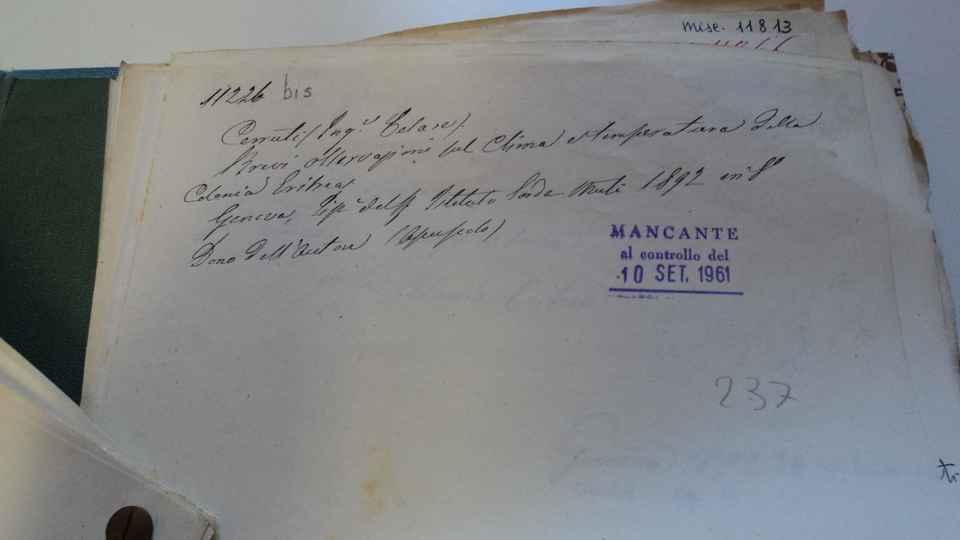 misc. 11813
11226 bis
Cerruti (Ing.e Cesare).
Brevi osservazioni sul Clima e temperatura della
Colonia Eritrea
Genova, Tip.a del R. Istituto Sordo Muti 1892 in 8°
Dono dell'Autore (Opuscolo)
MANCANTE
al controllo del
10 SET. 1961
237